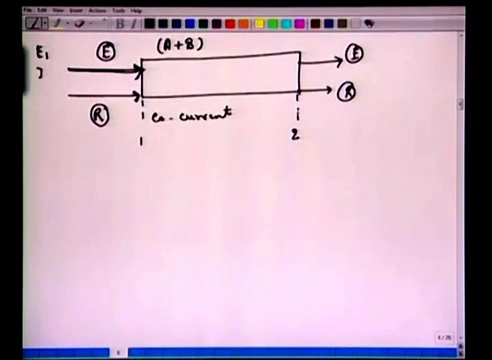 File Edit View Insert Actions Tools Help
(A+B)
E1 E E
R R
co-current
1 2